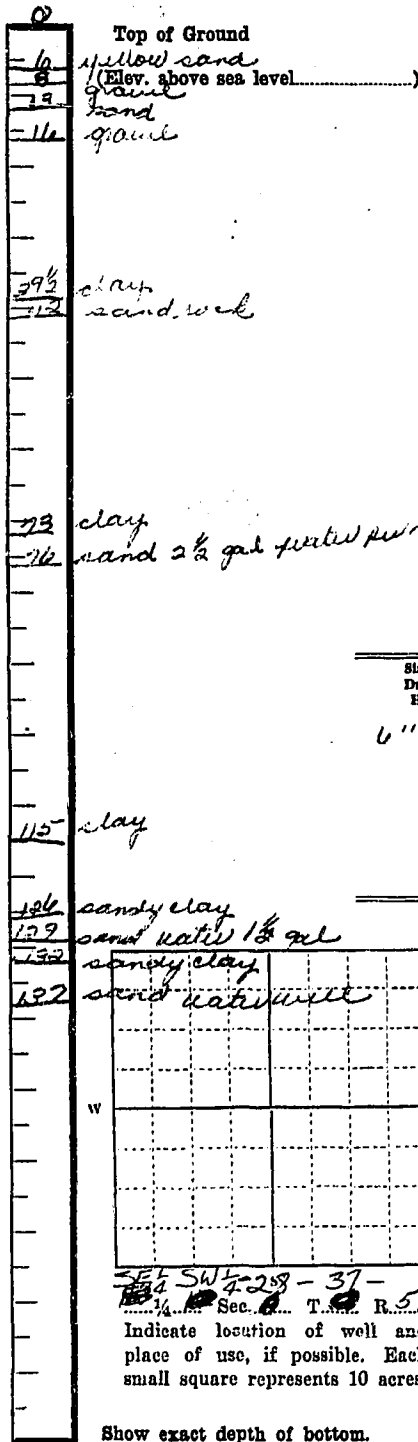 0
Top of Ground
6 yellow sand
8 (Elev. above sea level..........)
gravel
12 sand
16 gravel
39½ clay
42 sand rock
73 clay
76 sand 2½ gal water
6"
115 clay
126 sandy clay
129 sand water 1½ gal
132 sandy clay
137 sand water well
W
SE¼ SW¼ 28 - 37 -
¼ Sec. T. R. 5
Indicate location of well an
place of use, if possible. Eac
small square represents 10 acres
Show exact depth of bottom.